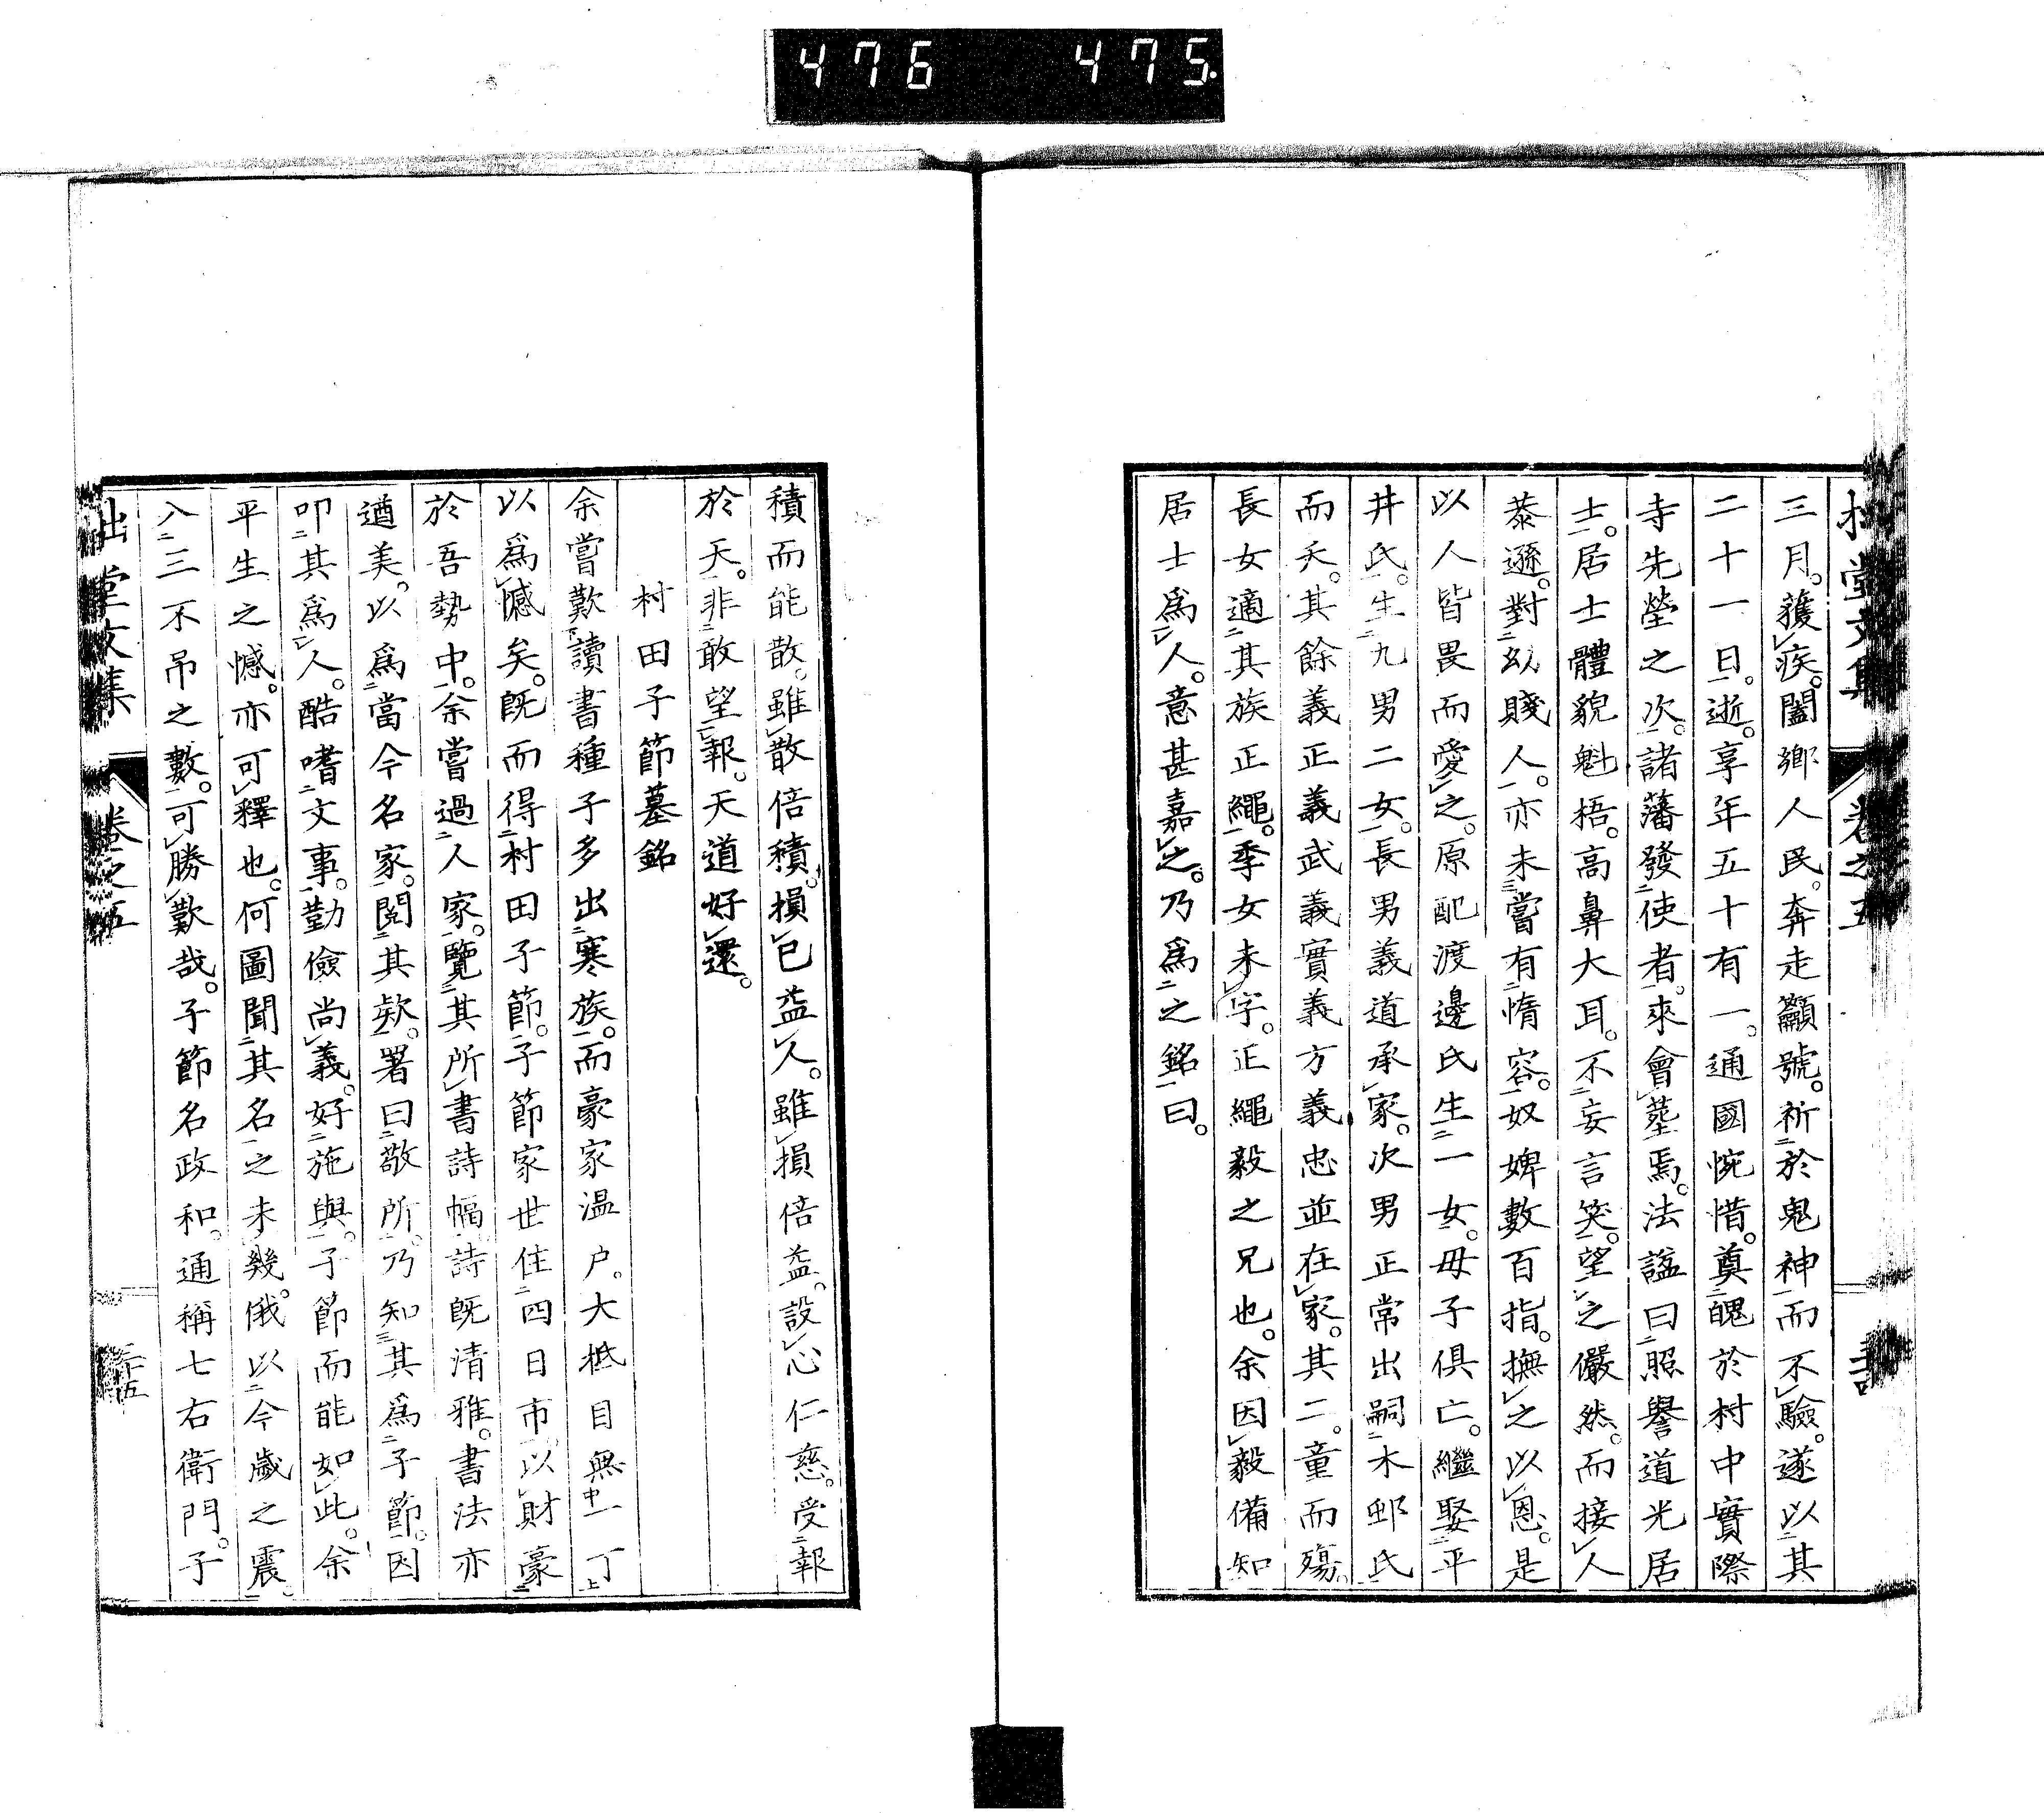 476 475
三月。獲疾。闔鄉人民。奔走籲號。祈於鬼神而不驗。遂以其
二十一日。逝。享年五十有一。通國惋惜。奠醜於村中實際
寺先塋之次。諸藩發使者。來會葬焉。法諡曰照譽道光居
士。居士體貌魁梧。高鼻大耳。不妄言笑。望之儼然。而接人
恭遜。對幼賤人。亦未嘗有惰容。奴婢數百指。撫之以恩。是
以人皆畏而愛之。原配渡邊氏生一女。母子俱亡。繼娶平
井氏。生九男二女。長男義道承家。次男正常出嗣木邨氏
而夭。其餘義正義武義實義方義忠並在家。其二。童而殤。
長女適其族正繩。季女未字。正繩毅之兄也。余因毅備知
居士爲人。意甚嘉之。乃爲之銘曰。
積而能散。雖散倍積。損已益人。雖損倍益。設心仁慈。受報
於天。非敢望報。天道好還。
村田子節墓銘
余嘗歎讀書種子多出寒族。而豪家温户。大柢目無一丁
以爲憾矣。既而得村田子節。子節家世住四日市以財豪
於吾勢中。余嘗過人家。覽其所書詩幅詩既清雅。書法亦
遒美。以爲當今名家。閱其欵。署曰敬所。乃知其爲子節。因
叩其爲人。酷嗜文事。勤儉尚義。好施與。子節而能如此。余
平生之憾。亦可釋也。何圖聞其名之未幾。俄以今歲之震。
入三不吊之數。可勝歎哉。子節名政和。通稱七右衛門。子
堂文集
卷之五
三十五